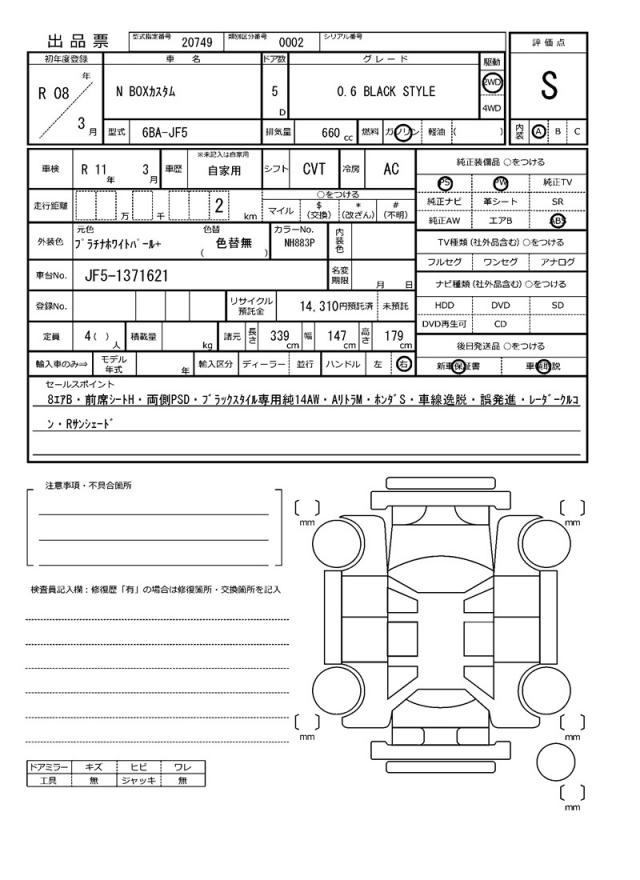 出品票 型式指定番号 20749 類別区分番号 0002 シリアル番号
評価点
S
内装 A B C
初年度登録 車名 ドア数 グレード 駆動
R 08 年 3 月 N BOXカスタム 5 D 0.6 BLACK STYLE 2WD 4WD
型式 6BA-JF5 排気量 660 cc 燃料 ガソリン 軽油 ( )
車検 R 11 年 3 月 車歴 ※未記入は自家用 自家用 シフト CVT 冷房 AC
走行距離 万 千 2 km ○をつける
マイル $ (交換) * (改ざん) # (不明)
外装色 元色 プラチナホワイトパール+ 色替 ( 色替無 ) カラーNo. NH883P 内装色
車台No. JF5-1371621 名変期限 月 日
登録No. リサイクル預託金 14,310円預託済 未預託
定員 4( ) 人 積載量 kg 諸元 長さ 339 cm 幅 147 cm 高さ 179 cm
輸入車のみ⇒ モデル年式 年 輸入区分 ディーラー 並行 ハンドル 左 右
純正装備品 ○をつける
PS PW 純正TV
純正ナビ 革シート SR
純正AW エアB ABS
TV種類 (社外品含む) ○をつける
フルセグ ワンセグ アナログ
ナビ種類 (社外品含む) ○をつける
HDD DVD SD
DVD再生可 CD
後日発送品 ○をつける
新車保証書 車輌取説
セールスポイント
8エアB・前席シートH・両側PSD・ブラックスタイル専用純14AW・AリトラM・ホンダS・車線逸脱・誤発進・レーダークルコ
ン・Rサンシェード
注意事項・不具合箇所
検査員記入欄:修復歴「有」の場合は修復箇所・交換箇所を記入
ドアミラー キズ ヒビ ワレ
工具 無 ジャッキ 無
[ ] mm
[ ] mm
[ ] mm
[ ] mm
[ ] mm